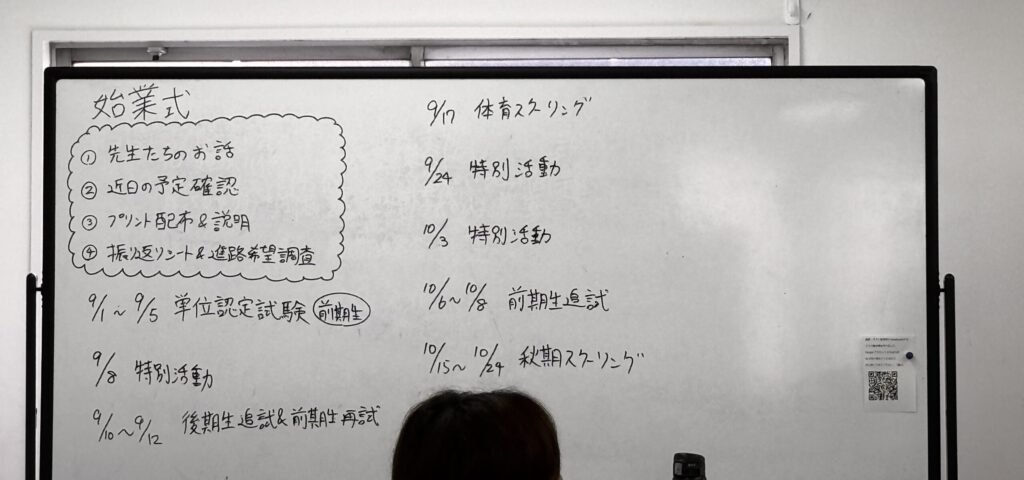 始業式
① 先生たちのお話
② 近日の予定確認
③ プリント配布&説明
④ 振り返りシート&進路希望調査
9/1~9/5 単位認定試験 前期生
9/8 特別活動
9/10~9/12 後期生追試&前期生再試
9/17 体育スクーリング
9/24 特別活動
10/3 特別活動
10/6~10/8 前期生追試
10/15~10/24 秋期スクーリング